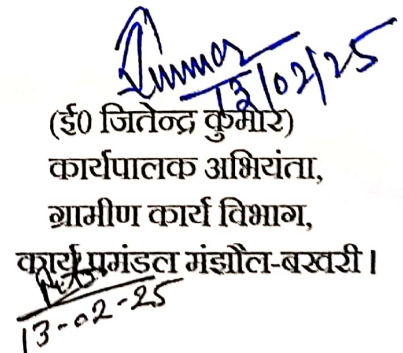 Kumar
13/02/25
(ई0 जितेन्द्र कुमार)
कार्यपालक अभियंता,
ग्रामीण कार्य विभाग,
कार्य प्रमंडल मंझौल-बखरी।
13-02-25